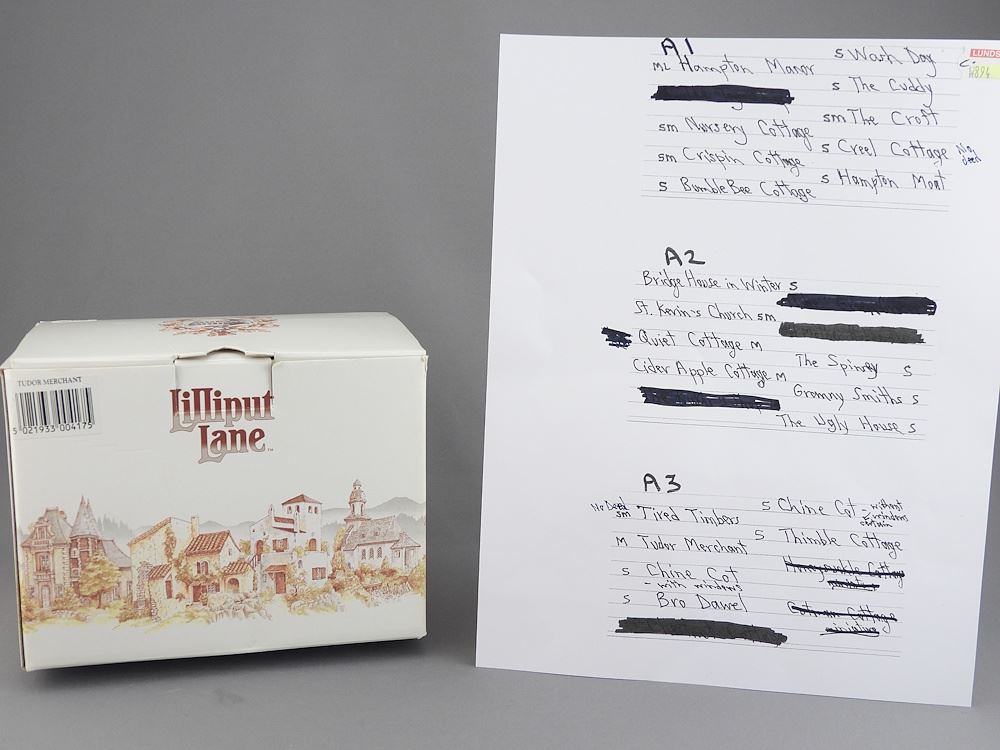 TUDOR MERCHANT
5 021933 004175
Lilliput
Lane
™
LUNDS
A1
ML Hampton Manor
sm Nursery Cottage
sm Crispin Cottage
s BumbleBee Cottage
s Wash Day
s The Cuddy
sm The Croft
s Creel Cottage No deed
s Hampton Moat
A2
Bridge House in Winter s
St. Kevin's Church sm
Quiet Cottage m
Cider Apple Cottage m
The Spinney s
Granny Smiths s
The Ugly House s
A3
No Deed
sm Tired Timbers
m Tudor Merchant
s Chine Cot
- with windows
s Bro Dawel
s Chine Cot - without
windows
s Thimble Cottage
Honeysuckle Cottage
miniature